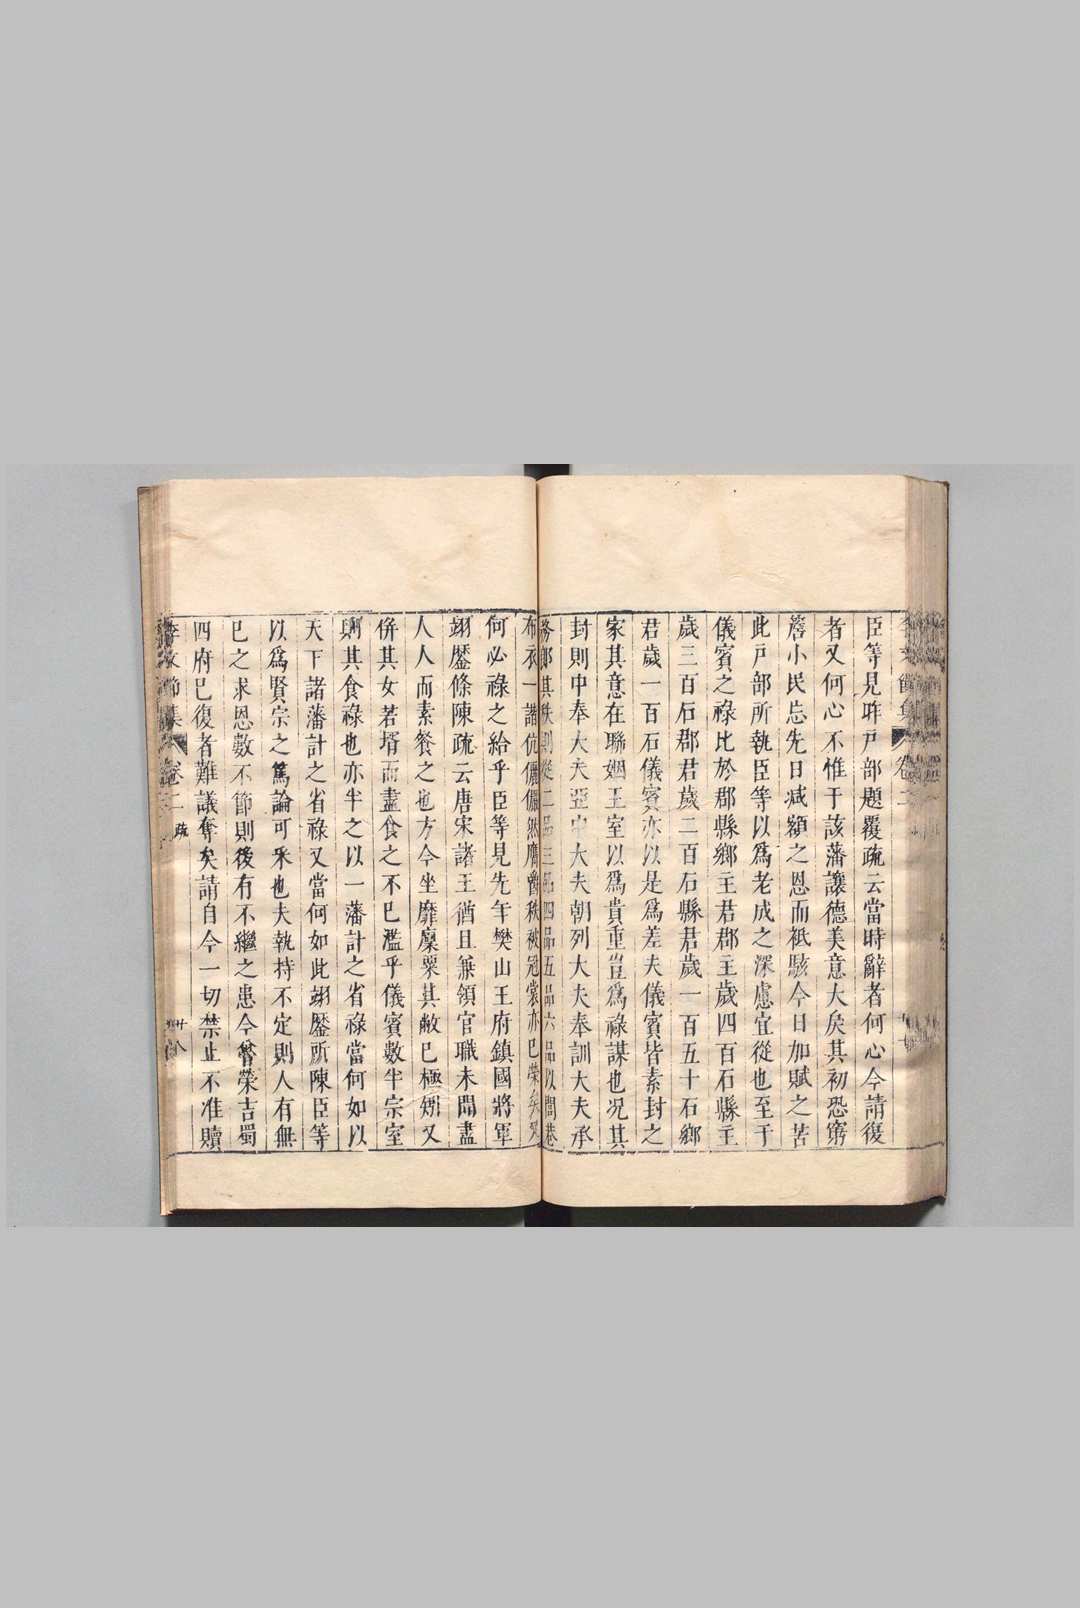 臣等見昨戶部題覆疏云當時辭者何心今請復
者又何心不惟于該藩讓德美意大矣其初恐窮
簷小民忘先日减額之恩而祗駭今日加賦之苦
此戶部所執臣等以爲老成之深慮宜從也至于
儀賓之祿比於郡縣鄉主君郡主歲四百石縣主
歲三百石郡君歲二百石縣君歲一百五十石鄉
君歲一百石儀賓亦以是爲差夫儀賓皆素封之
家其意在聯姻王室以爲貴重豈爲祿謀也况其
封則中奉大夫亞中大夫朝列大夫奉訓大夫承
務郎其秩則從二品三品四品五品六品以閭巷
布衣一諧伉儷儼然膺爵秩被冠裳亦已榮矣
何必祿之給乎臣等見先年樊山王府鎮國將軍
翊𨫼條陳疏云唐宋諸王猶且兼領官職未聞盡
人人而素餐之也方今坐靡廩粟其敝已極矧又
併其女若壻而盡食之不已濫乎儀賓數半宗室
輒其食祿也亦半之以一藩計之省祿當何如以
天下諸藩計之省祿又當何如此翊𨫼所陳臣等
以爲賢宗之篤論可采也夫執持不定則人有無
已之求恩數不節則後有不繼之患今晉榮吉蜀
四府已復者難議奪矣請自今一切禁止不准贖
李文節集 卷二 疏 廿八